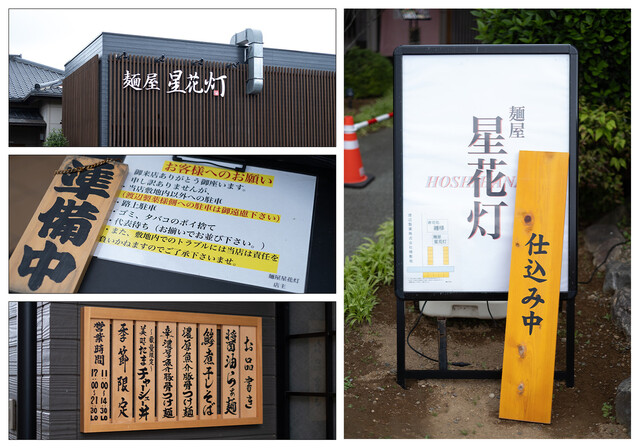 麺屋 星花灯
準備中
お客様へのお願い
御来店ありがとう御座います。
申し訳ありませんが、
・当店敷地内以外への駐車
(渡辺製菓様側への駐車は御遠慮下さい)
・路上駐車
・ゴミ、タバコのポイ捨て
・代表待ち(お揃いでお並び下さい。)
・また、敷地内でのトラブルには当店は責任を
負いかねますのでご了承下さいませ。
麺屋星花灯
店主
お品書き
醤油らぁ麺
鯵煮干しそば
濃厚魚介豚骨つけ麺
辛濃厚魚介豚骨つけ麺
美明豚たまチャーシュー丼
季節限定
営業時間
11:00〜14:30LO
17:00〜21:30LO
麺屋
星花灯
仕込み中